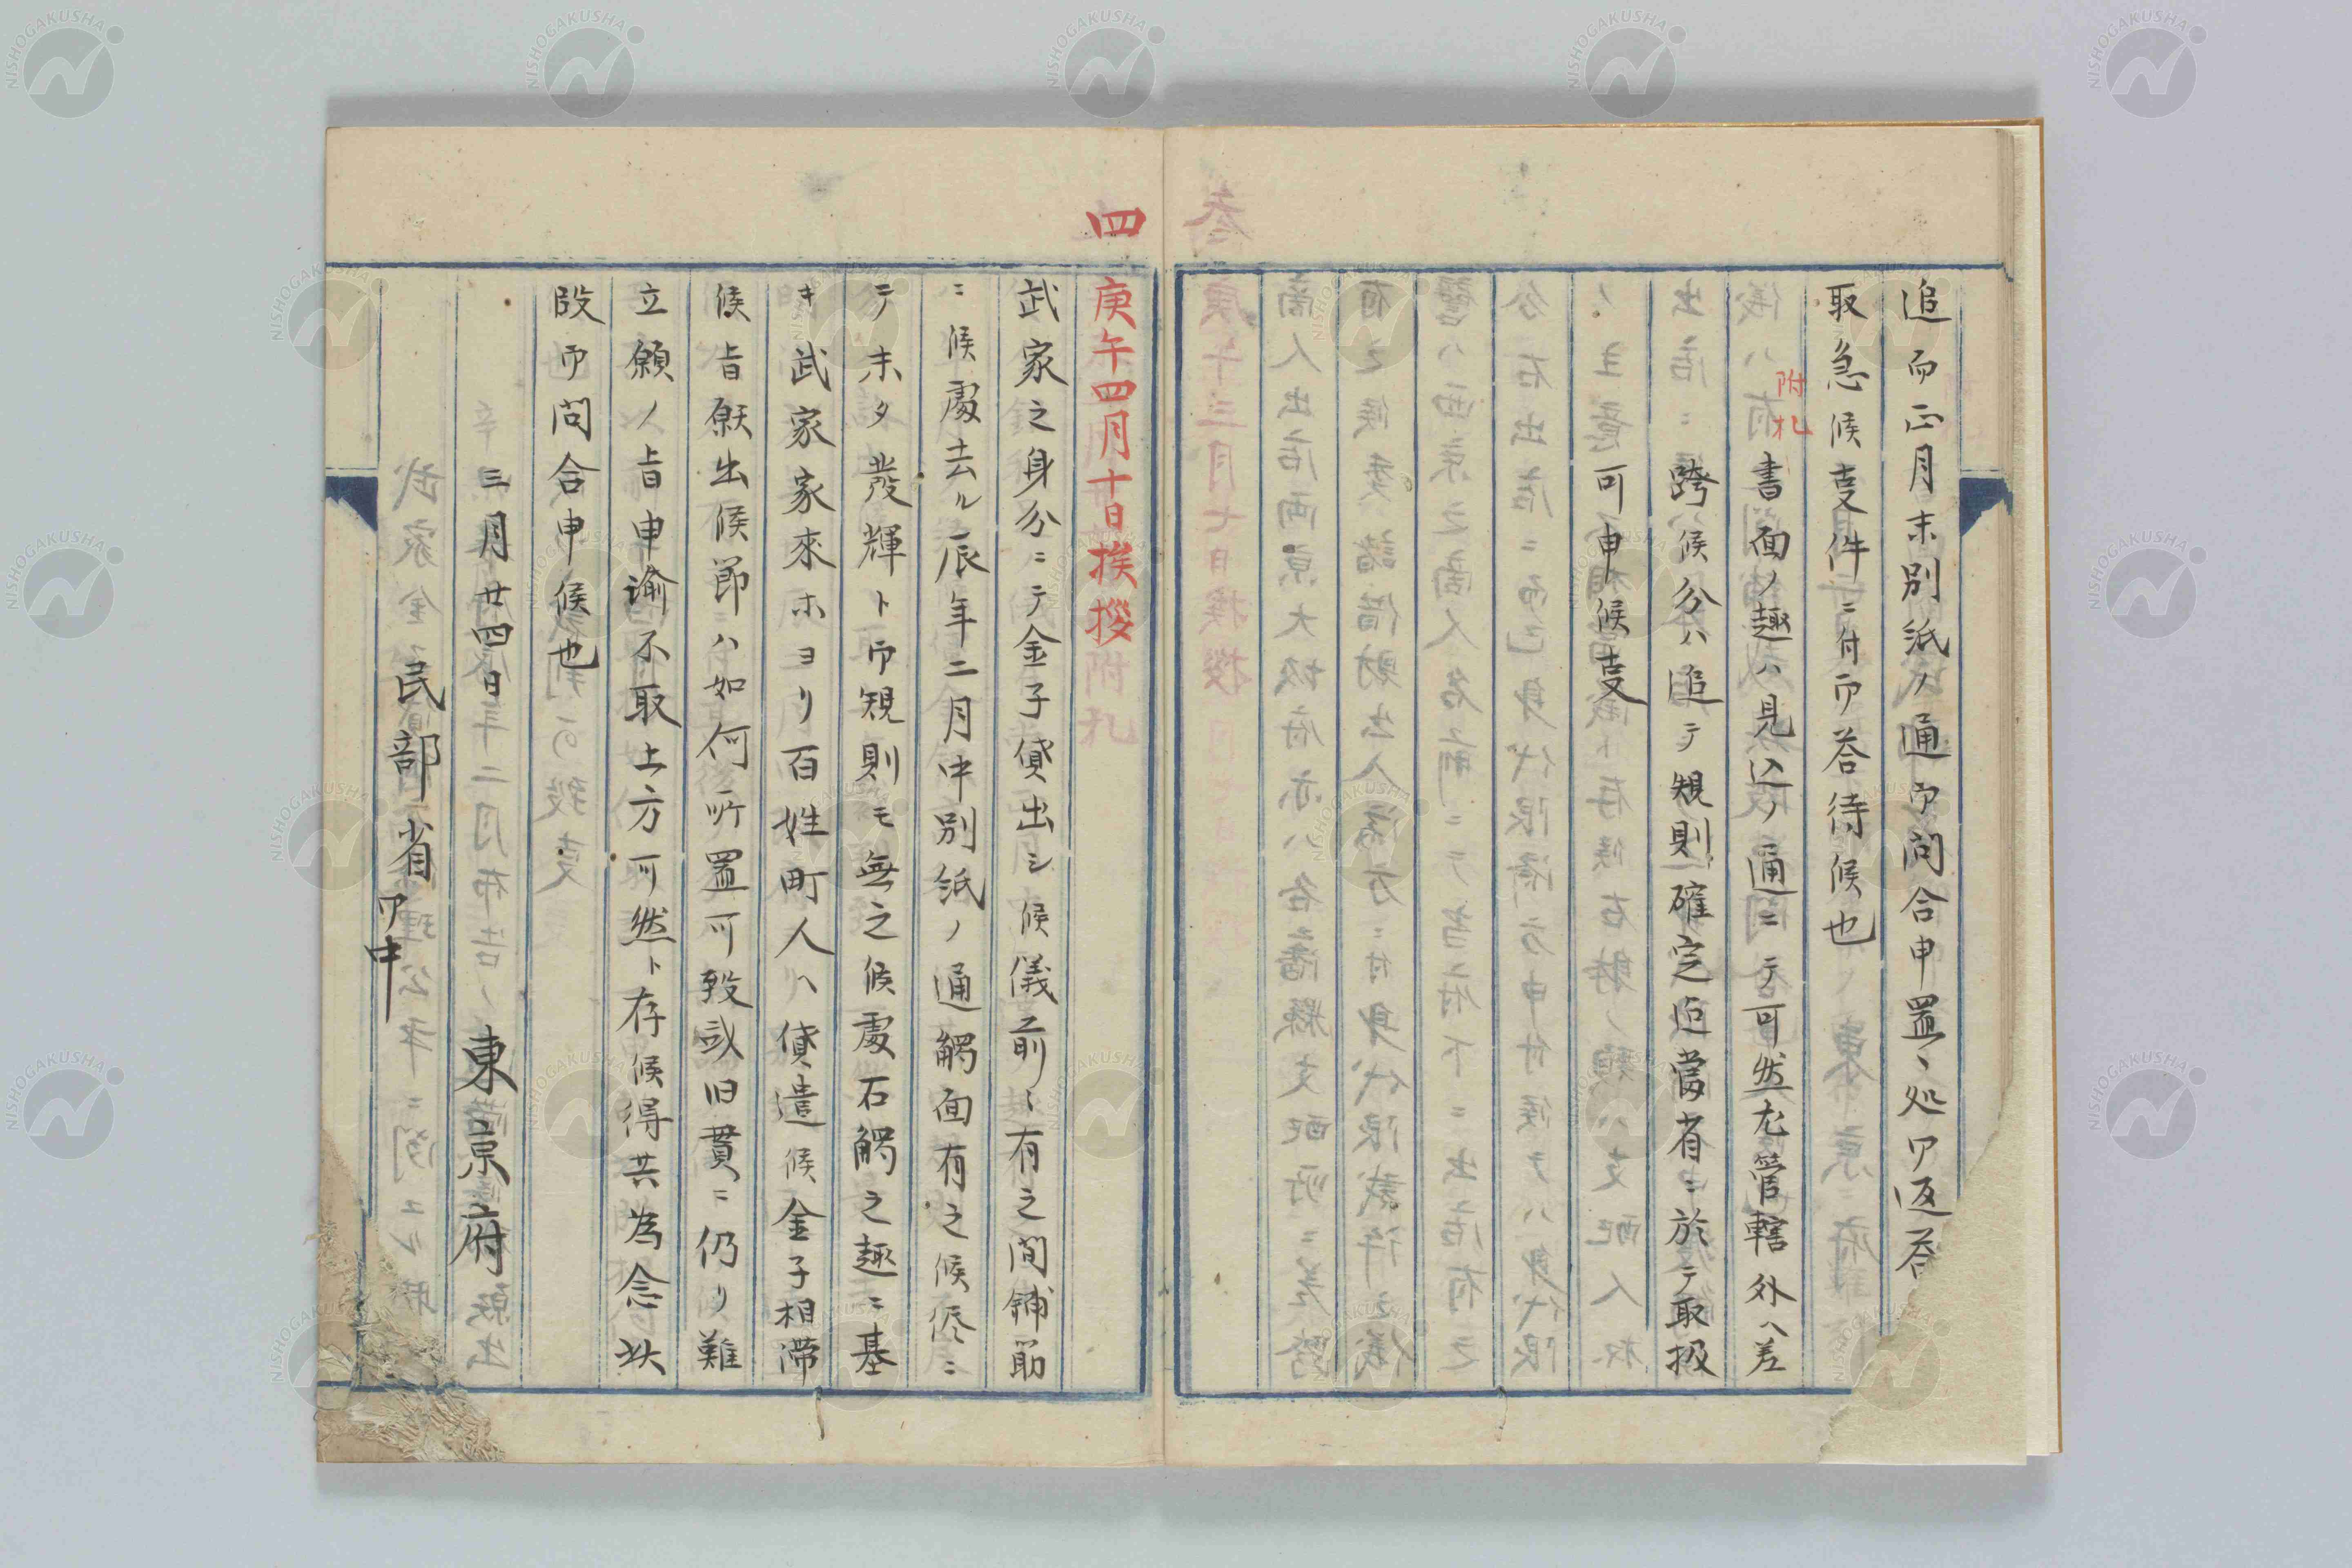 追而正月末別紙ノ通御問合申置候処御返答
取急候支件ニ付御答待候也
附札
書面ノ趣ハ見込ノ通ニテ可然尤管轄外ヘ差
跨候分ハ追テ規則確定迄当省ニ於テ取扱
可申候支
四
庚午四月十日挨拶
武家之身分ニテ金子貸出シ候儀前々有之間鋪筋
ニ候處去ル辰年二月中別紙ノ通觸面有之候儘ニ
テ未タ發輝ト御規則モ無之候處右觸之趣ニ基
キ武家家来ホヨリ百姓町人ヘ貸遣候金子相滞
候旨願出候節ハ如何所置可致哉旧貫ニ仍リ難
立願ノ旨申諭不取上方可然ト存候得共為念此
段御問合申候也
三月廿四日 東京府
民部省御中